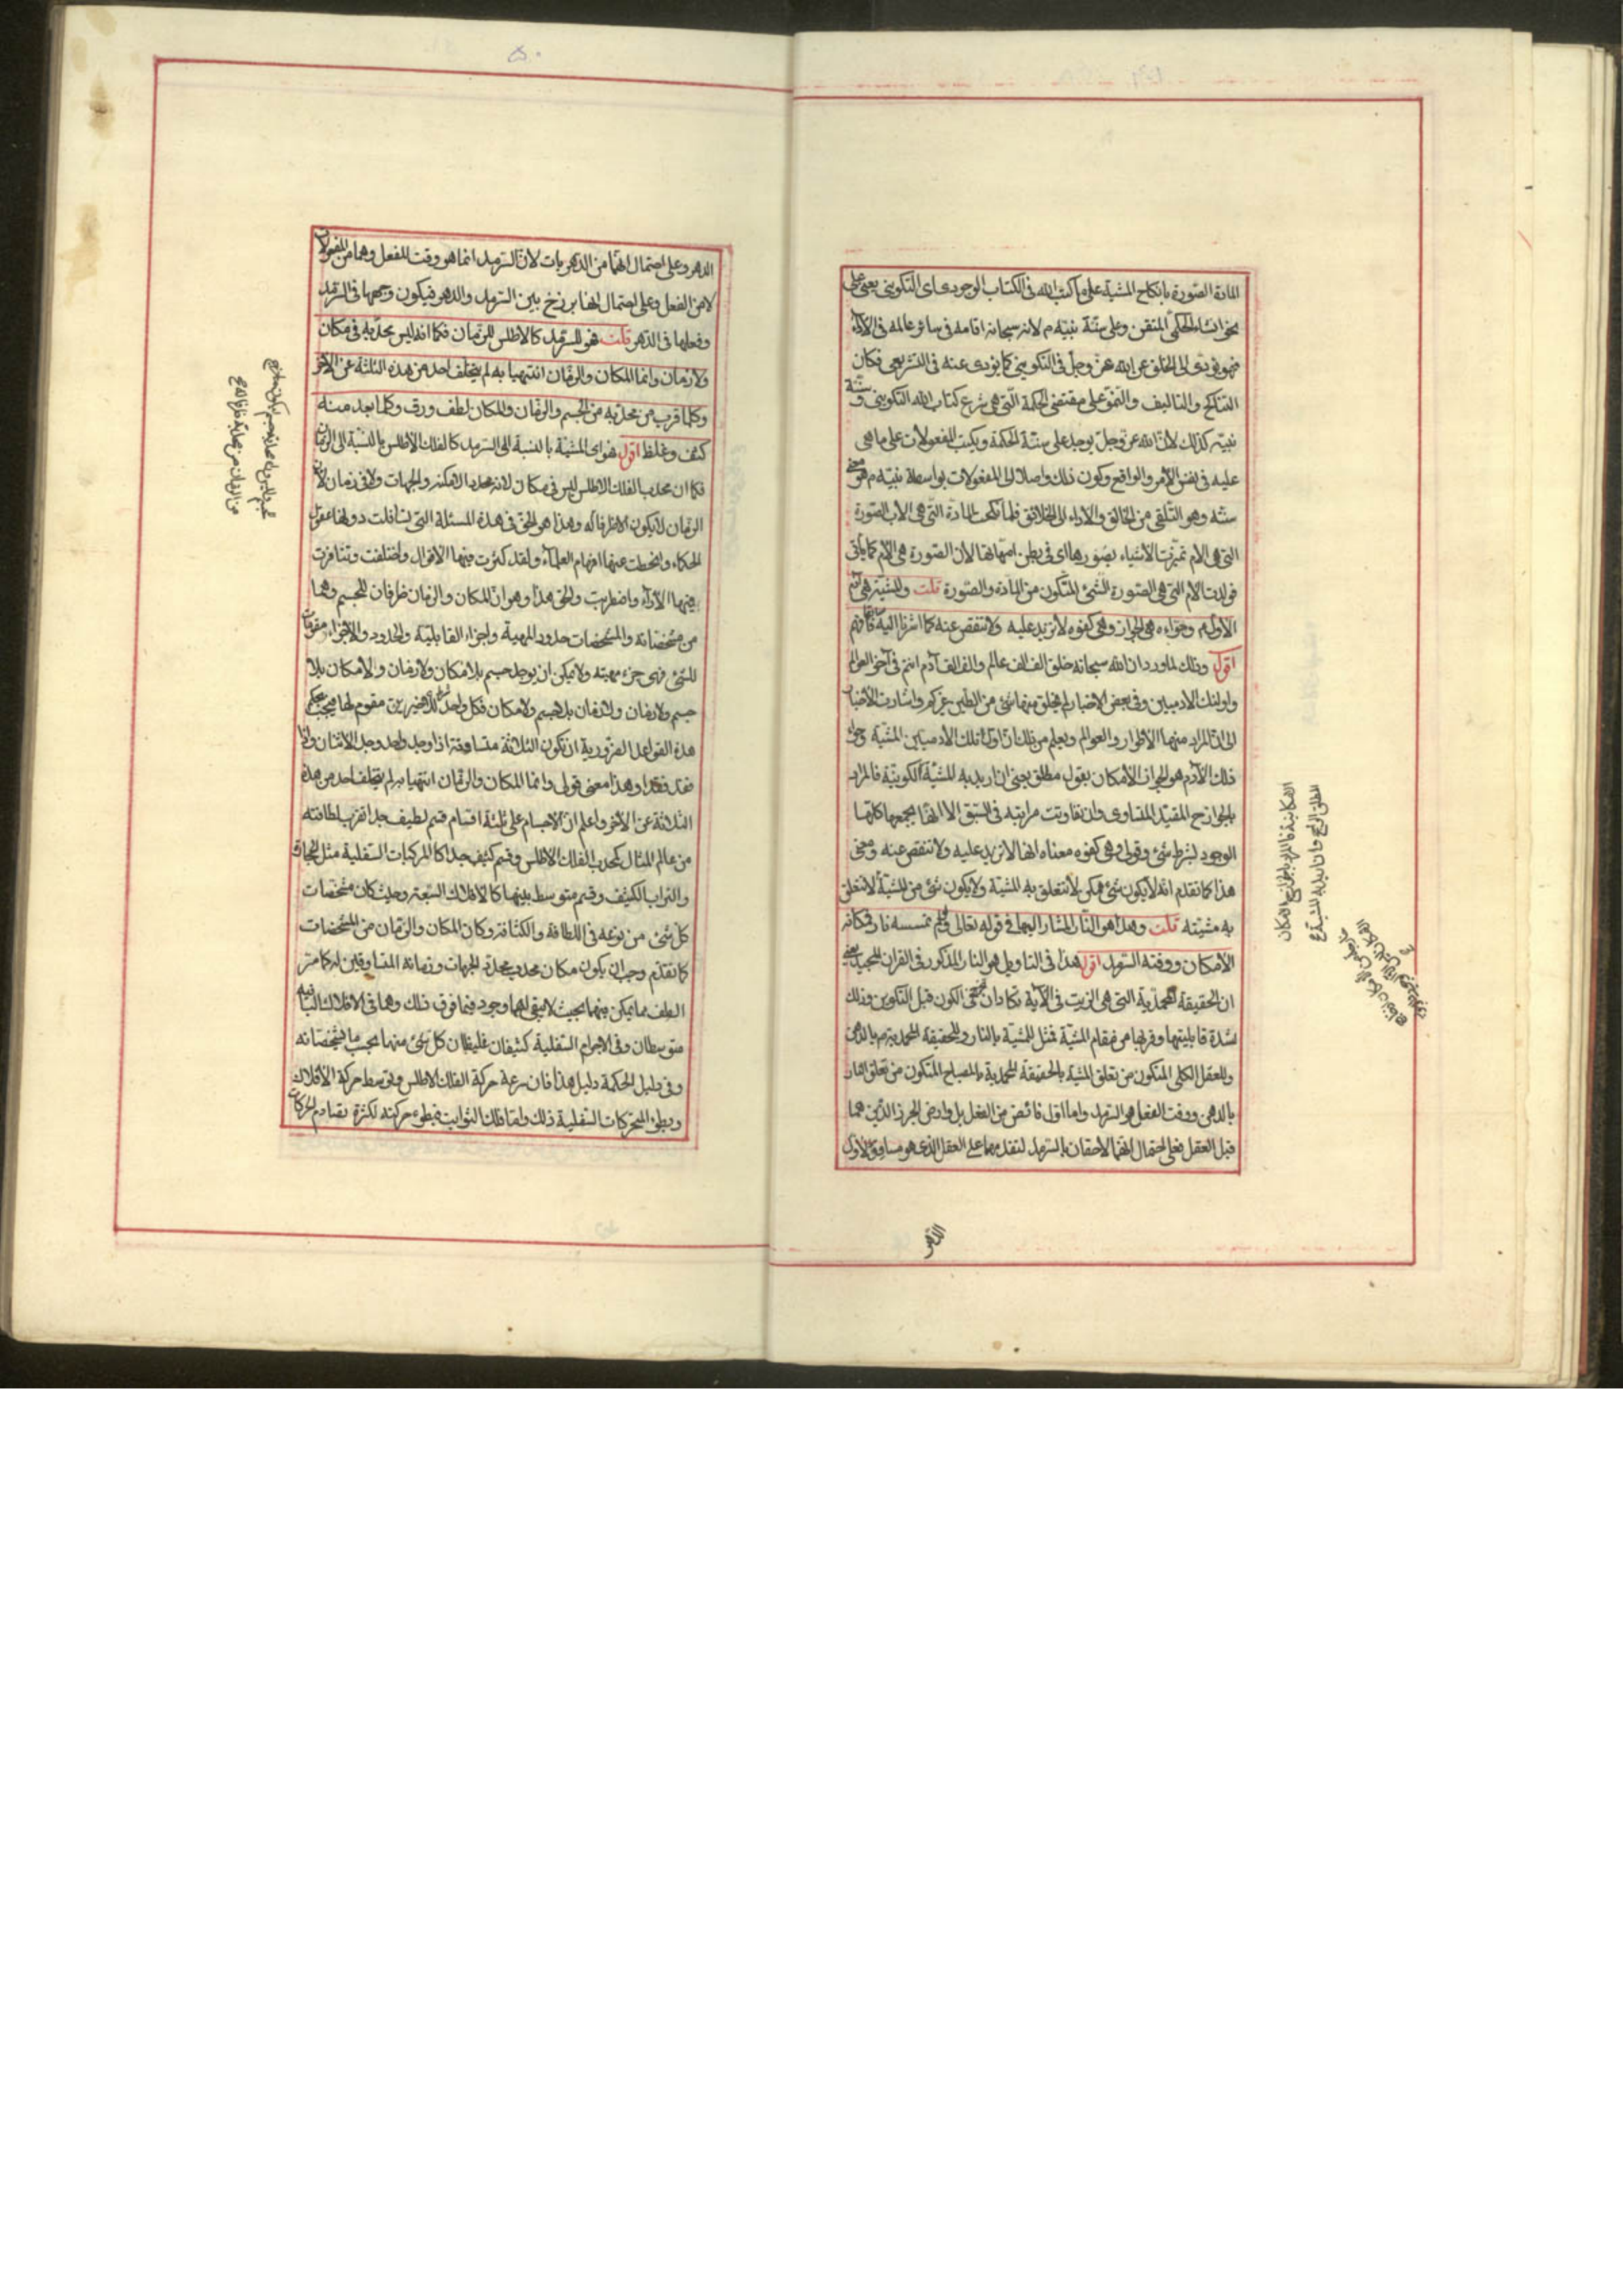 المادة الصورة بانكاح المشية على ما كتب الله فى الكتاب الوجودى اى التكوينى يعنى على
نحو انشاء الحكمى المتقن وعلى سنة نبيه م لانه سبحانه اقامه فى سائر عالمه فى الاداء
فهو يؤدى الى الخلق عن الله عز وجل فى التكوينى كما يؤدى عنه فى التشريعى فكان
التناكح والتاليف والنمو على مقتضى الحكمة التى هى شرع كتاب الله التكوينى وسنة
نبيه كذلك لان الله عز وجل يوجد على سنة الحكمة ويكتب المفعولات على ما هى
عليه فى نفس الامر والواقع وكون ذلك واصلا الى المفعولات بواسطة نبيه م هو معنى
سنته وهو التلقى من الخالق والاداء الى الخلائق فلما نكحت المادة التى هى الاب الصورة
التى هى الام تميزت الأشياء بصورها اى فى بطن امهاتها لان الصورة هى الام كما يأتى
فولدت الام التى هى الصورة الشئ المتكون من المادة والصورة قلت والمشية هى آدم
الاول م وحواءه هى الجواز وهى كفوه لا تزيد عليه ولا تنقص عنه كما اشرنا اليه سابقا فافهم
اقول وذلك لما ورد ان الله سبحانه خلق الف الف عالم والف الف آدم انتم فى آخر العوالم
واولئك الادميين وفى بعض الاخبار لم يخلق منها شئ من الطين غيركم واشارت الأخبار
الى ان المراد منها الأطوار والعوالم ويعلم من ذلك ان اول تلك الادميين المشية وحواء
ذلك الآدم هو الجواز الأمكان بقول مطلق يعنى ان اريد به المشية الكونية فالمراد
بالجواز المقيد المتساوى وان تفاوتت مراتبه فى السبق الا انها يجمعها كلها
الوجود لشرط شئ وقولى وهى كفوه معناه انها لا تزيد عليه ولا تنقص عنه ومعنى
هذا كما تقدم انه لا يكون شئ ممكن لا تتعلق به المشية ولا يكون شئ من المشية لا تتعلق
به مشيته قلت وهذا هو النار المشار اليها فى قوله تعالى ولو لم تمسسه نار ومكانه
الأمكان ووقته السرمد اقول هذا فى التاويل هو النار المذكور فى القران المجيد يعنى
ان الحقيقة المحمدية التى هى الزيت فى الآية تكاد ان تضئ فى الكون قبل التكوين وذلك
لشدة قابليتها وقربها من مقام المشية فمثل للمشية بالنار وللحقيقة المحمدية م بالدهن
وللعقل الكلى المتكون من تعلق المشية بالحقيقة المحمدية بالمصباح المتكون من تعلق النار
بالدهن ووقت الفعل هو السرمد واما اول فائض من الفعل بل وارض الجرز الذين هما
قبل العقل فعلى احتمال انهما لاحقان بالسرمد لتقدمهما على العقل الذى هو مساوق لاول
الدهر
الامكانية فالمراد بالجواز الامكان
المطلق الراجح وان اريد به المشية
الدهر وعلى احتمال انهما من الدهريات لان السرمد انما هو وقت للفعل وهما من المفعولات
لا من الفعل وعلى احتمال انها برزخ بين السرمد والدهر فيكون وجهها فى السرمد
وفعلها فى الدهر قلت هو للسرمد كالاطلس للزمان فكما انه ليس محدبه فى مكان
ولا زمان وانما المكان والزمان انتهيا به لم يتخلف احد من هذه الثلثة عن الآخر
وكلما قرب من محدبه من الجسم والزمان والمكان لطف ورق وكلما بعد منه
كثف وغلظ اقول هو اى المشية بالنسبة الى السرمد كالفلك الأطلس بالنسبة الى الزمان
فكما ان محدب الفلك الاطلس ليس فى مكان لانه محدد الامكنة والجهات ولا فى زمان لان
الزمان لا يكون الا ظرفا له وهذا هو الحق فى هذه المسئلة التى تسافلت دونها عقول
الحكماء وانحطت عنها افهام العلماء ولقد كثرت فيها الاقوال واختلفت وتنافرت
فيها الآراء واضطربت والحق هذا وهو ان المكان والزمان ظرفان للجسم وهما
من مشخصاته والمشخصات حدود المهية واجزاء القابلية والحدود والاجزاء مقومات
للشئ فهى جزء مهيته ولا يمكن ان يوجد جسم بلا مكان ولا زمان ولا مكان بلا
جسم ولا زمان ولا زمان بلا جسم ولا مكان فكل واحد للاخيرين مقوم لها فيجب بحكم
هذه القواعد الضرورية ان تكون الثلاثة متساوقة اذا وجد واحد وجد الاثنان واذا
فقد فقدا وهذا معنى قولى وانما المكان والزمان انتهيا به لم يتخلف احد من هذه
الثلاثة عن الآخر واعلم ان الاجسام على ثلثة اقسام قسم لطيف جدا تقرب لطافته
من عالم المثال كمحدب الفلك الاطلس وقسم كثيف جدا كالمركبات السفلية مثل الحجارة
والتراب الكثيف وقسم متوسط بينهما كالافلاك السبعة وحيث كان مشخصات
كل شئ من نوعه فى اللطافة والكثافة وكان المكان والزمان من المشخصات
كما تقدم وجب ان يكون مكان محدب محدد الجهات وزمانه المتساوقين له كما مر
الطف مما يمكن فيهما بحيث لا يبقى لهما وجود فيما فوق ذلك وهما فى الافلاك الباقية
متوسطان وفى الاجرام السفلية كثيفان غليظان كل شئ منها بحسب ما مشخصاته
وفى دليل الحكمة دليل هذا فان سرعة حركة الفلك الاطلس وتوسط حركة الأفلاك
وبطؤ المتحركات السفلية ذلك واما فلك الثوابت فبطوء حركته لكثرة تصادم الحركات